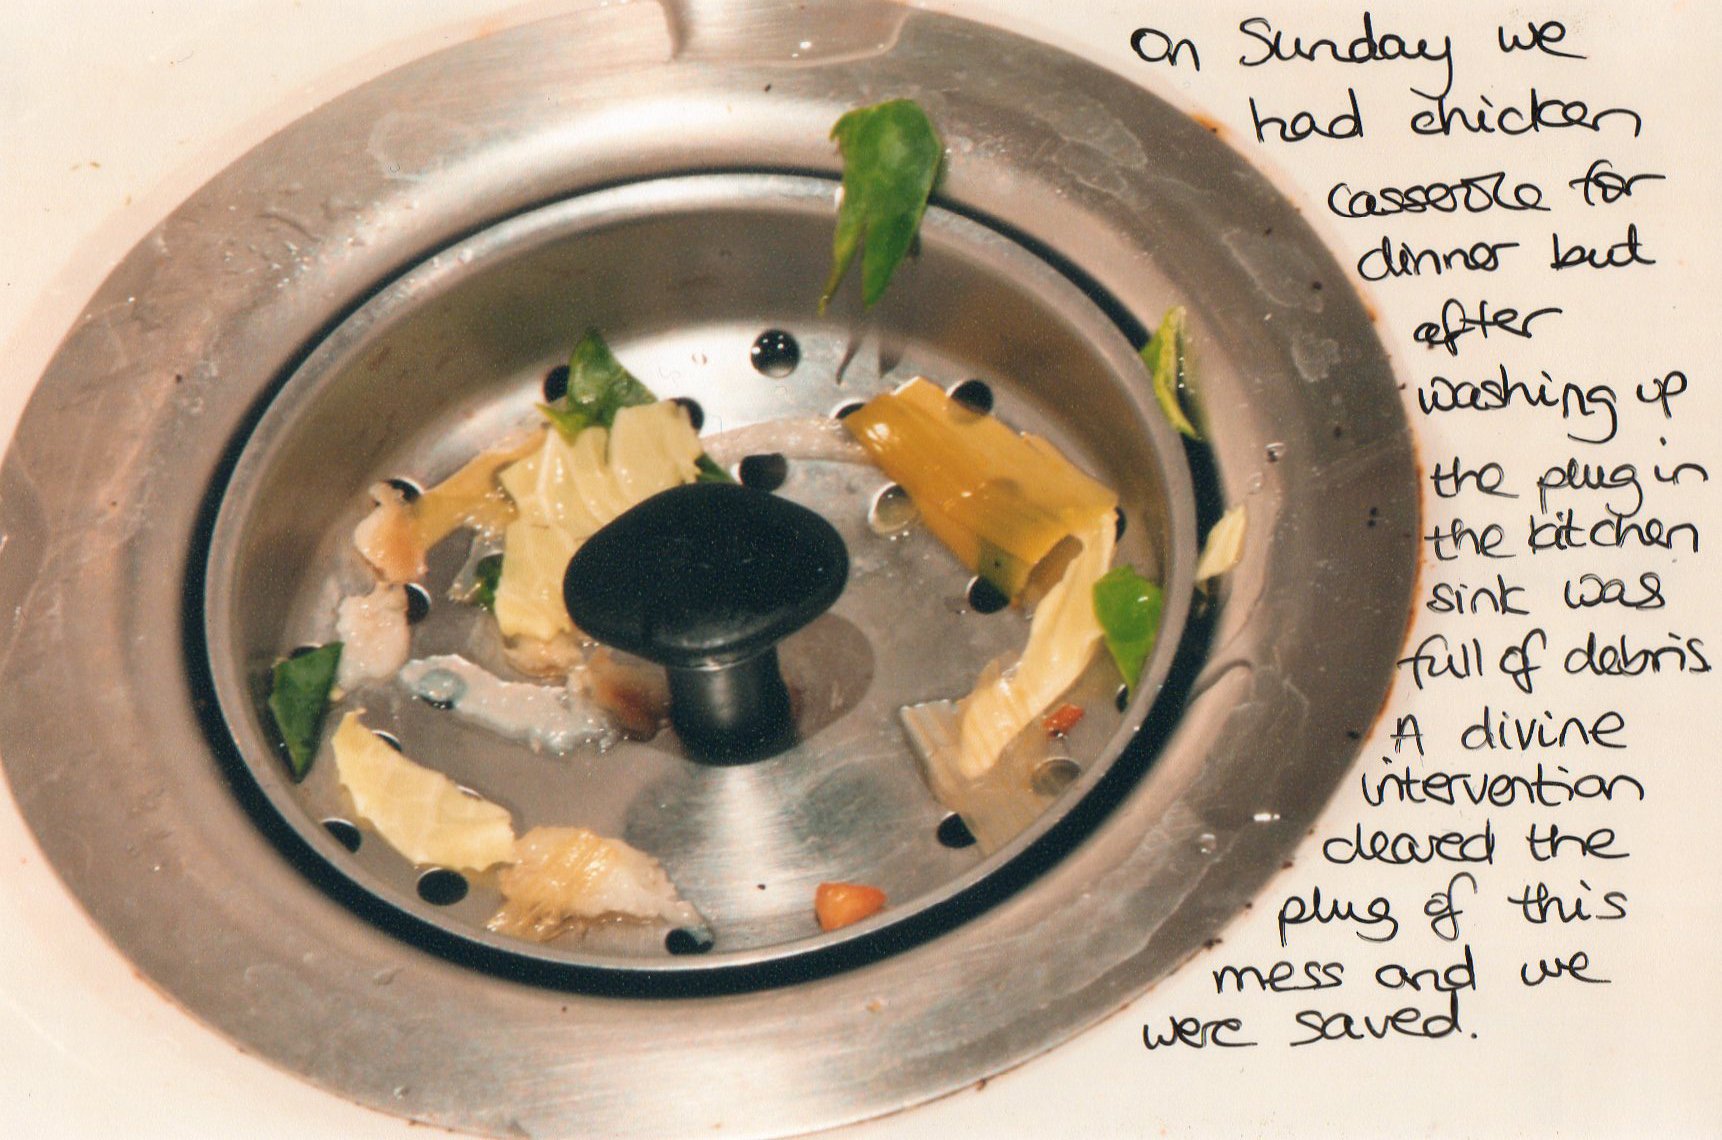 On Sunday we
had chicken
casserole for
dinner but
after
washing up
the plug in
the kitchen
sink was
full of debris
A divine
intervention
cleared the
plug of this
mess and we
were saved.